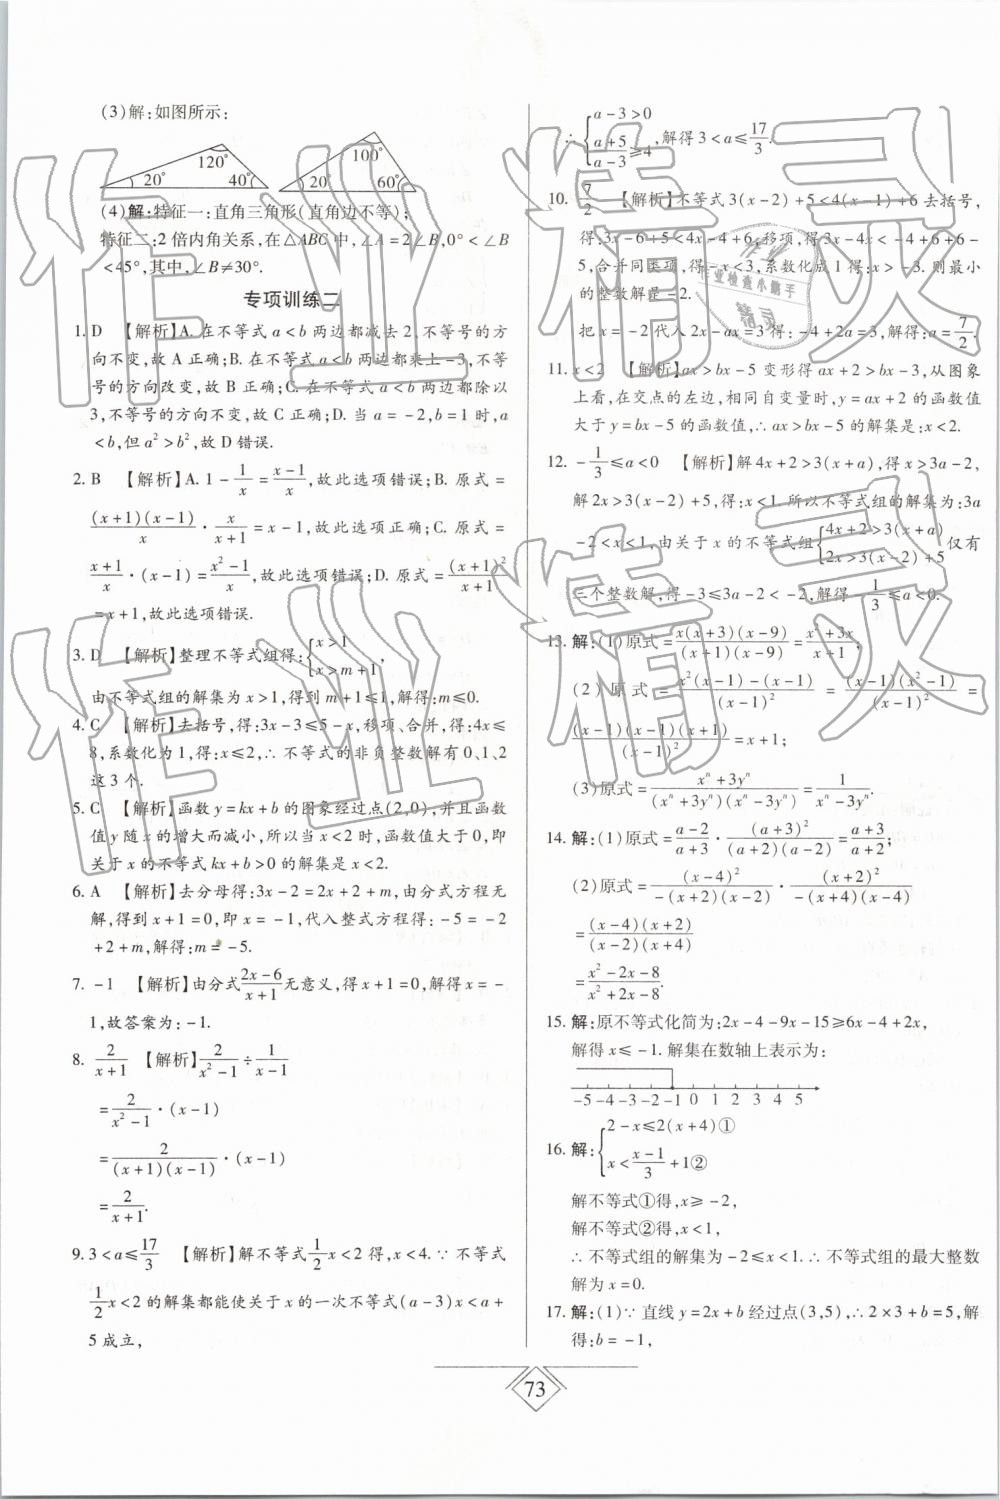 (3)解:如图所示:
120° 20° 40° 100° 20° 60°
(4)解:特征一:直角三角形(直角边不等);
特征二:2倍内角关系,在△ABC中,∠A=2∠B,0°<∠B
<45°,其中,∠B≠30°.
专项训练二
1. D 【解析】A. 在不等式a<b两边都减去2,不等号的方
向不变,故A正确;B. 在不等式a<b两边都乘上-3,不等
号的方向改变,故B正确;C. 在不等式a<b两边都除以
3,不等号的方向不变,故C正确;D. 当a=-2,b=1时,a
<b,但a²>b²,故D错误.
2. B 【解析】A. 1-1/x=(x-1)/x,故此选项错误;B. 原式=
(x+1)(x-1)/x·x/(x+1)=x-1,故此选项正确;C. 原式=
(x+1)/x·(x-1)=(x²-1)/x,故此选项错误;D. 原式=(x+1)²/(x+1)
=x+1,故此选项错误.
3. D 【解析】整理不等式组得:{x>1
x>m+1,
由不等式组的解集为x>1,得到m+1≤1,解得:m≤0.
4. C 【解析】去括号,得:3x-3≤5-x,移项、合并,得:4x≤
8,系数化为1,得:x≤2,∴不等式的非负整数解有0、1、2
这3个.
5. C 【解析】函数y=kx+b的图象经过点(2,0),并且函数
值y随x的增大而减小,所以当x<2时,函数值大于0,即
关于x的不等式kx+b>0的解集是x<2.
6. A 【解析】去分母得:3x-2=2x+2+m,由分式方程无
解,得到x+1=0,即x=-1,代入整式方程得:-5=-2
+2+m,解得:m=-5.
7. -1 【解析】由分式(2x-6)/(x+1)无意义,得x+1=0,解得x=-
1,故答案为:-1.
8. 2/(x+1) 【解析】2/(x²-1)÷1/(x-1)
=2/(x²-1)·(x-1)
=2/((x+1)(x-1))·(x-1)
=2/(x+1).
9. 3<a≤17/3 【解析】解不等式1/2x<2得,x<4.∵不等式
1/2x<2的解集都能使关于x的一次不等式(a-3)x<a+
5成立,
∴{a-3>0
(a+5)/(a-3)≥4,解得3<a≤17/3.
10. 7/2 【解析】不等式3(x-2)+5<4(x-1)+6去括号,
得:3x-6+5<4x-4+6,移项,得3x-4x<-4+6+6-
5,合并同类项,得-x<3,系数化成1得:x>-3.则最小
的整数解是-2.
把x=-2代入2x-ax=3得:-4+2a=3,解得:a=7/2.
11. x<2 【解析】ax>bx-5变形得ax+2>bx-3,从图象
上看,在交点的左边,相同自变量时,y=ax+2的函数值
大于y=bx-5的函数值,∴ax>bx-5的解集是:x<2.
12. -1/3≤a<0 【解析】解4x+2>3(x+a),得x>3a-2,
解2x>3(x-2)+5,得:x<1.所以不等式组的解集为:3a
-2<x<1,由关于x的不等式组{4x+2>3(x+a)
2x>3(x-2)+5仅有
三个整数解,得-3≤3a-2<-2,解得-1/3≤a<0.
13. 解:(1)原式=x(x+3)(x-9)/((x+1)(x-9))=(x²+3x)/(x+1);
(2)原式=(x²(x-1)-(x-1))/(x-1)²=(x-1)(x²-1)/(x-1)²=
(x-1)(x-1)(x+1)/(x-1)²=x+1;
(3)原式=(xⁿ+3yⁿ)/((xⁿ+3yⁿ)(xⁿ-3yⁿ))=1/(xⁿ-3yⁿ).
14. 解:(1)原式=(a-2)/(a+3)·(a+3)²/((a+2)(a-2))=(a+3)/(a+2);
(2)原式=(x-4)²/(-(x+2)(x-2))·(x+2)²/(-(x+4)(x-4))
=(x-4)(x+2)/((x-2)(x+4))
=(x²-2x-8)/(x²+2x-8).
15. 解:原不等式化简为:2x-4-9x-15≥6x-4+2x,
解得x≤-1.解集在数轴上表示为:
-5 -4 -3 -2 -1 0 1 2 3 4 5
16. 解:{2-x≤2(x+4)①
x<(x-1)/3+1②
解不等式①得,x≥-2,
解不等式②得,x<1,
∴不等式组的解集为-2≤x<1.∴不等式组的最大整数
解为x=0.
17. 解:(1)∵直线y=2x+b经过点(3,5),∴2×3+b=5,解
得:b=-1,
73
作业精灵
作业精灵
作业检查小助手
精灵